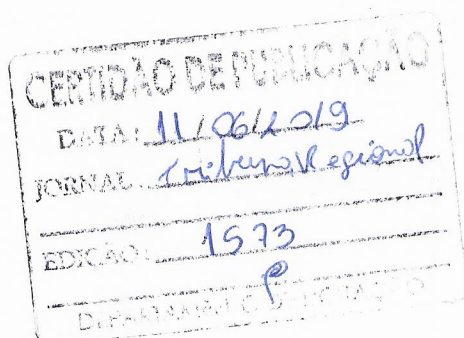 CERTIDÃO DE PUBLICAÇÃO
DATA: 11/06/2019
JORNAL Tribuna Regional
EDIÇÃO: 1573